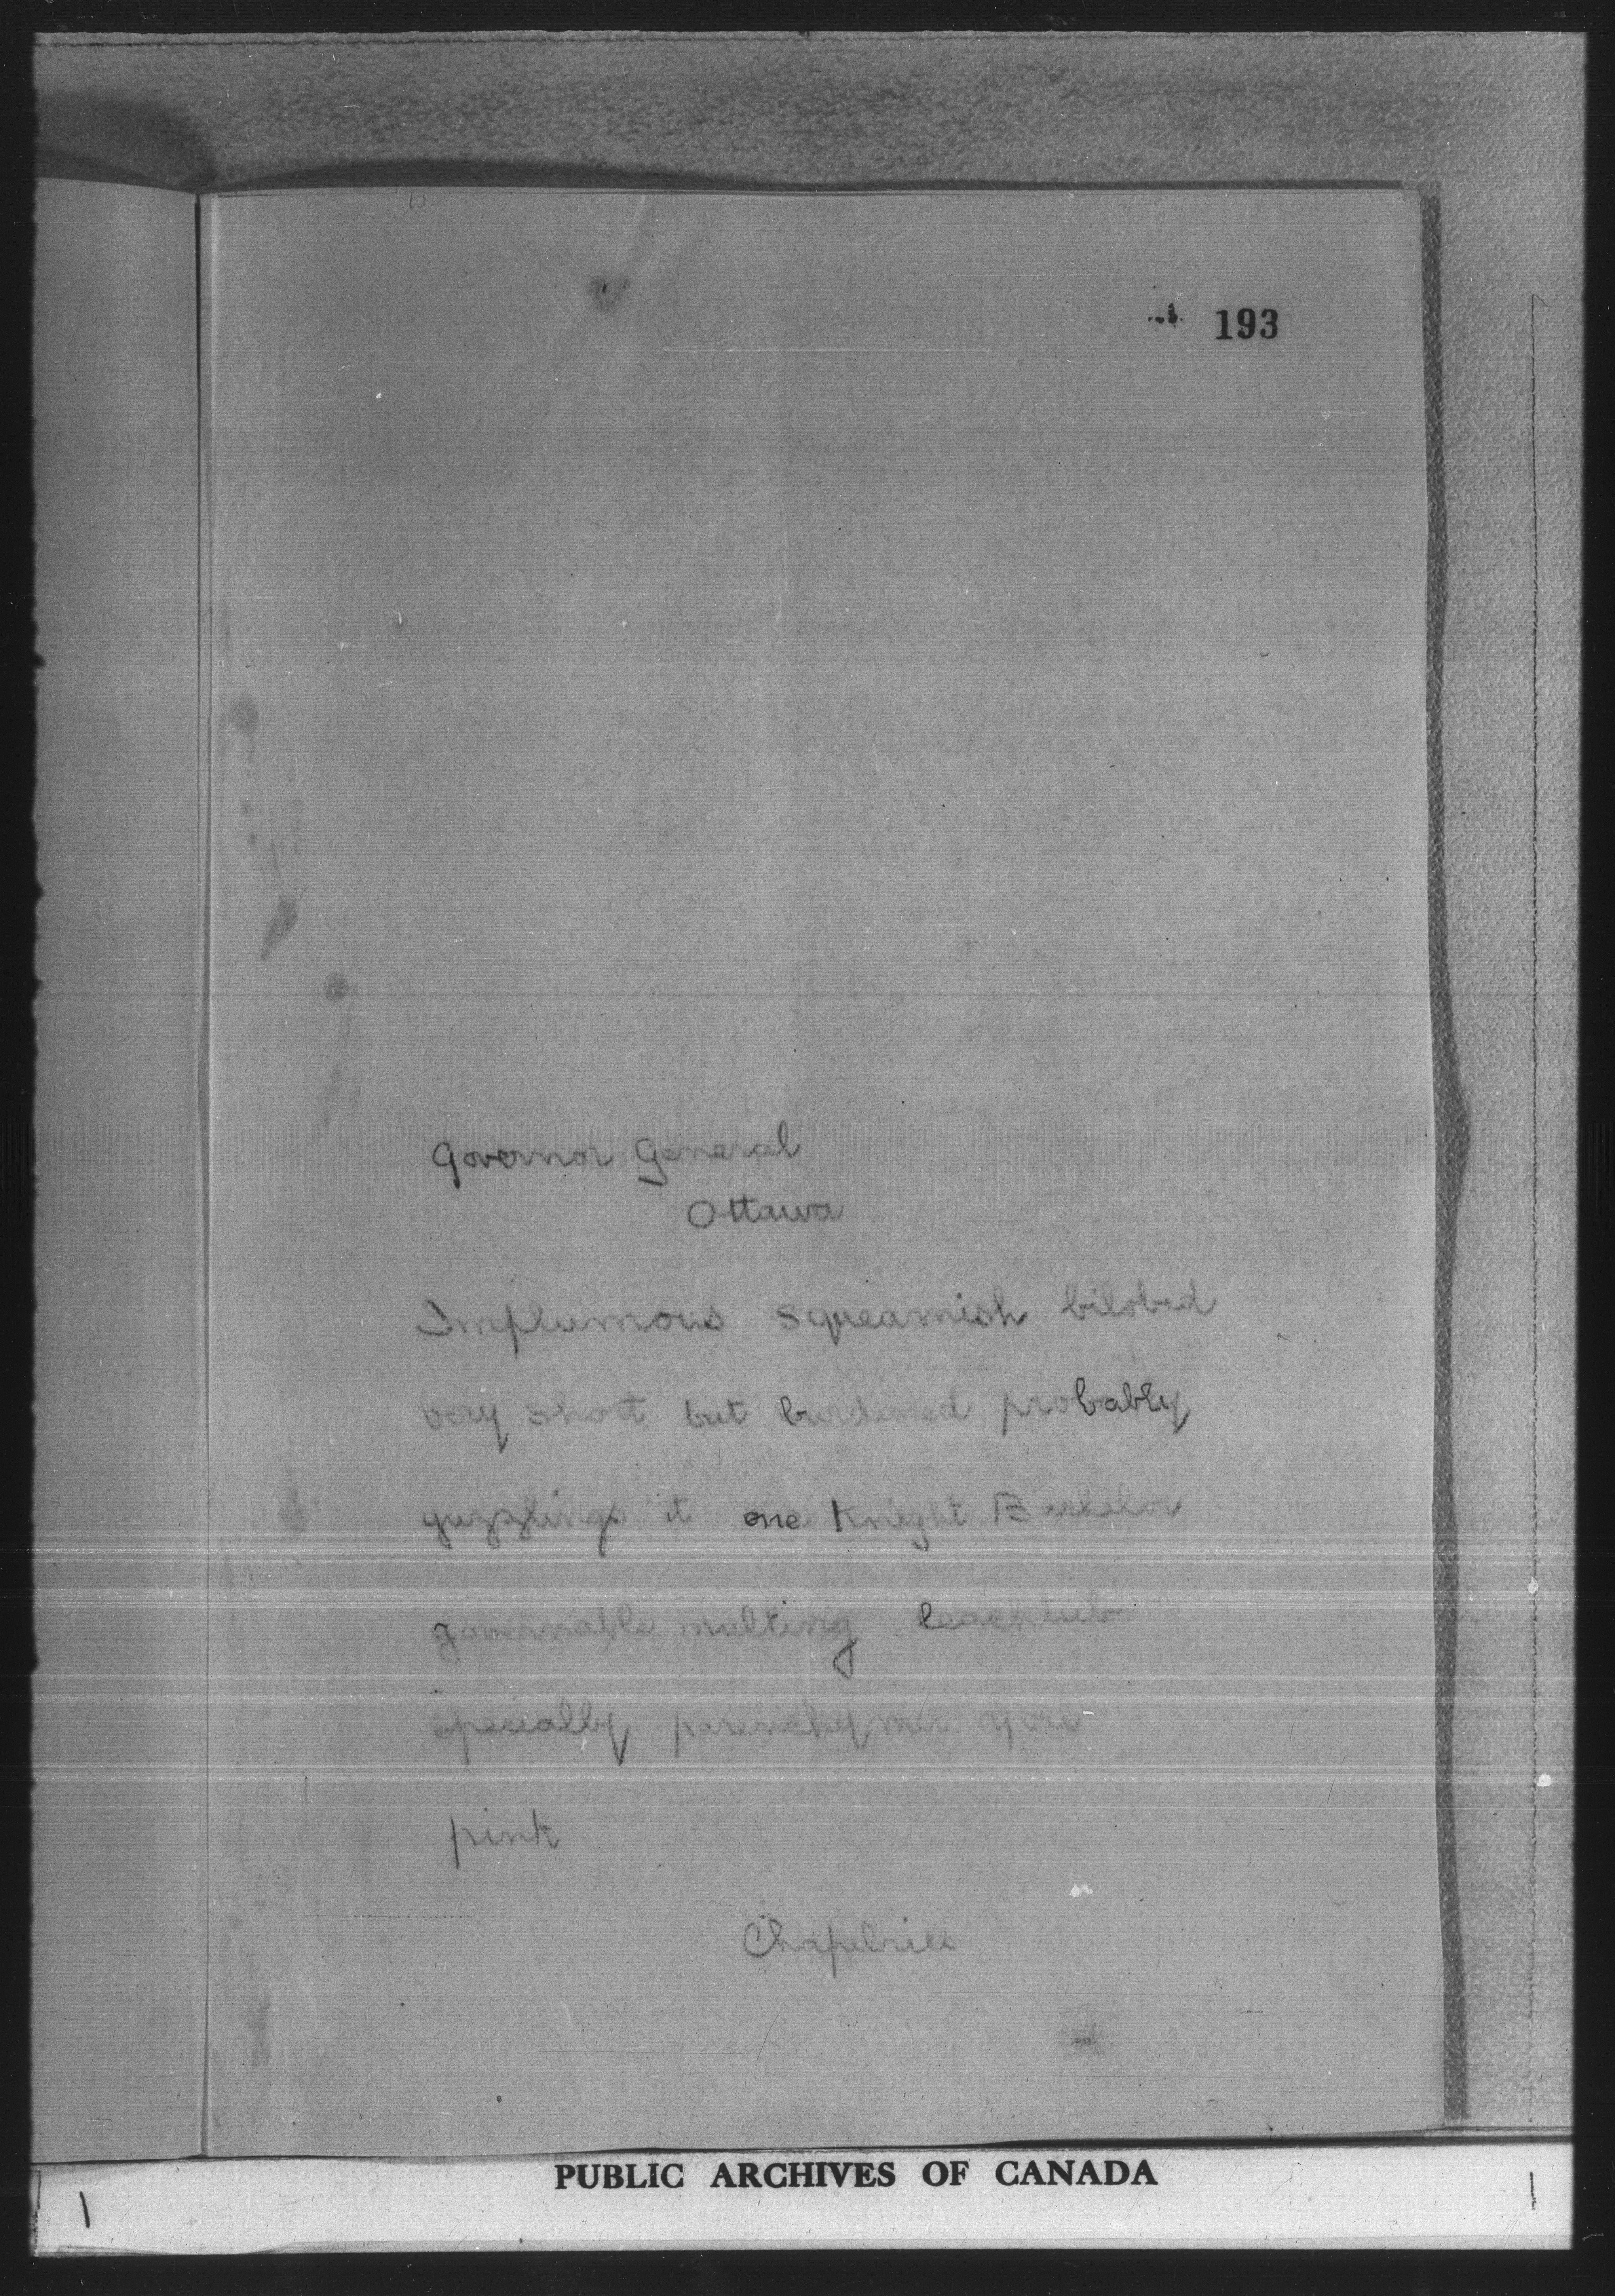 193
Governor General
Ottawa
Implumous squeamish bilobed
very short but burdened probably
guzzlings it one Knight Bachelor
governable malting
specially you
pink
Chapelries
PUBLIC ARCHIVES OF CANADA